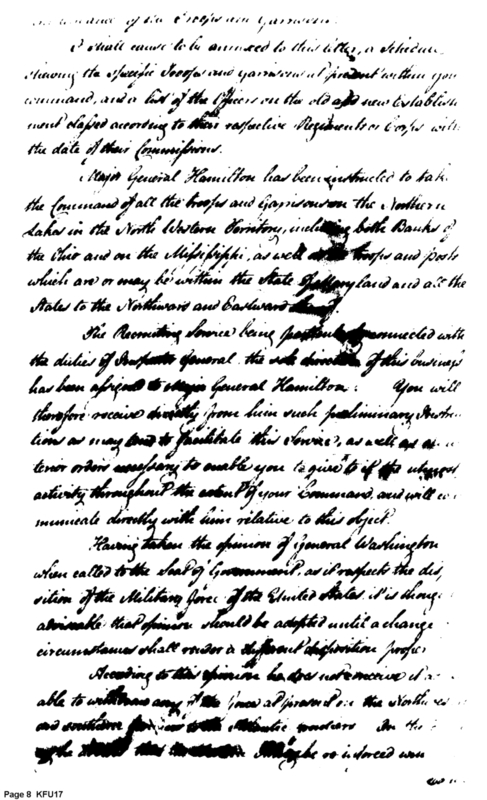 of the Troops and Garrisons.
I shall cause to be annexed to this letter, a Schedule
shewing the specific Troops and Garrisons at present within your
command, and a list of the Officers on the old and new Establish
ment classed according to their respective Regiments or Corps with
the date of their Commissions.
Major General Hamilton has been instructed to take
the Command of all the troops and Garrisons on the Northern
Lakes in the North Western Territory, including both Banks of
the Ohio and on the Mississippi, as well as the troops and posts
which are or may be within the State of Maryland and all the
States to the Northward and Eastward
The Recruiting Service being connected with
the duties of Inspector General the sole direction of this business
has been assigned to Major General Hamilton: You will
therefore receive directly from him such preliminary Instruc
tions as may tend to facilitate this Service, as well as
terior orders necessary to enable you to give to it the utmost
activity throughout the extent of your Command, and will co
mmunicate directly with him relative to this object.
Having taken the opinion of General Washington
when called to the Seat of Government, as it respects the dis
sition of the Military force of the United States it is thought
adviseable that opinion should be adopted until a change
circumstances shall render a different disposition proper
According to this opinion he does not conceive it
able to withdraw any of the force at present on the Northwes
and southern to the Atlantic In the
be the be reinforced
Page 8 KFU17